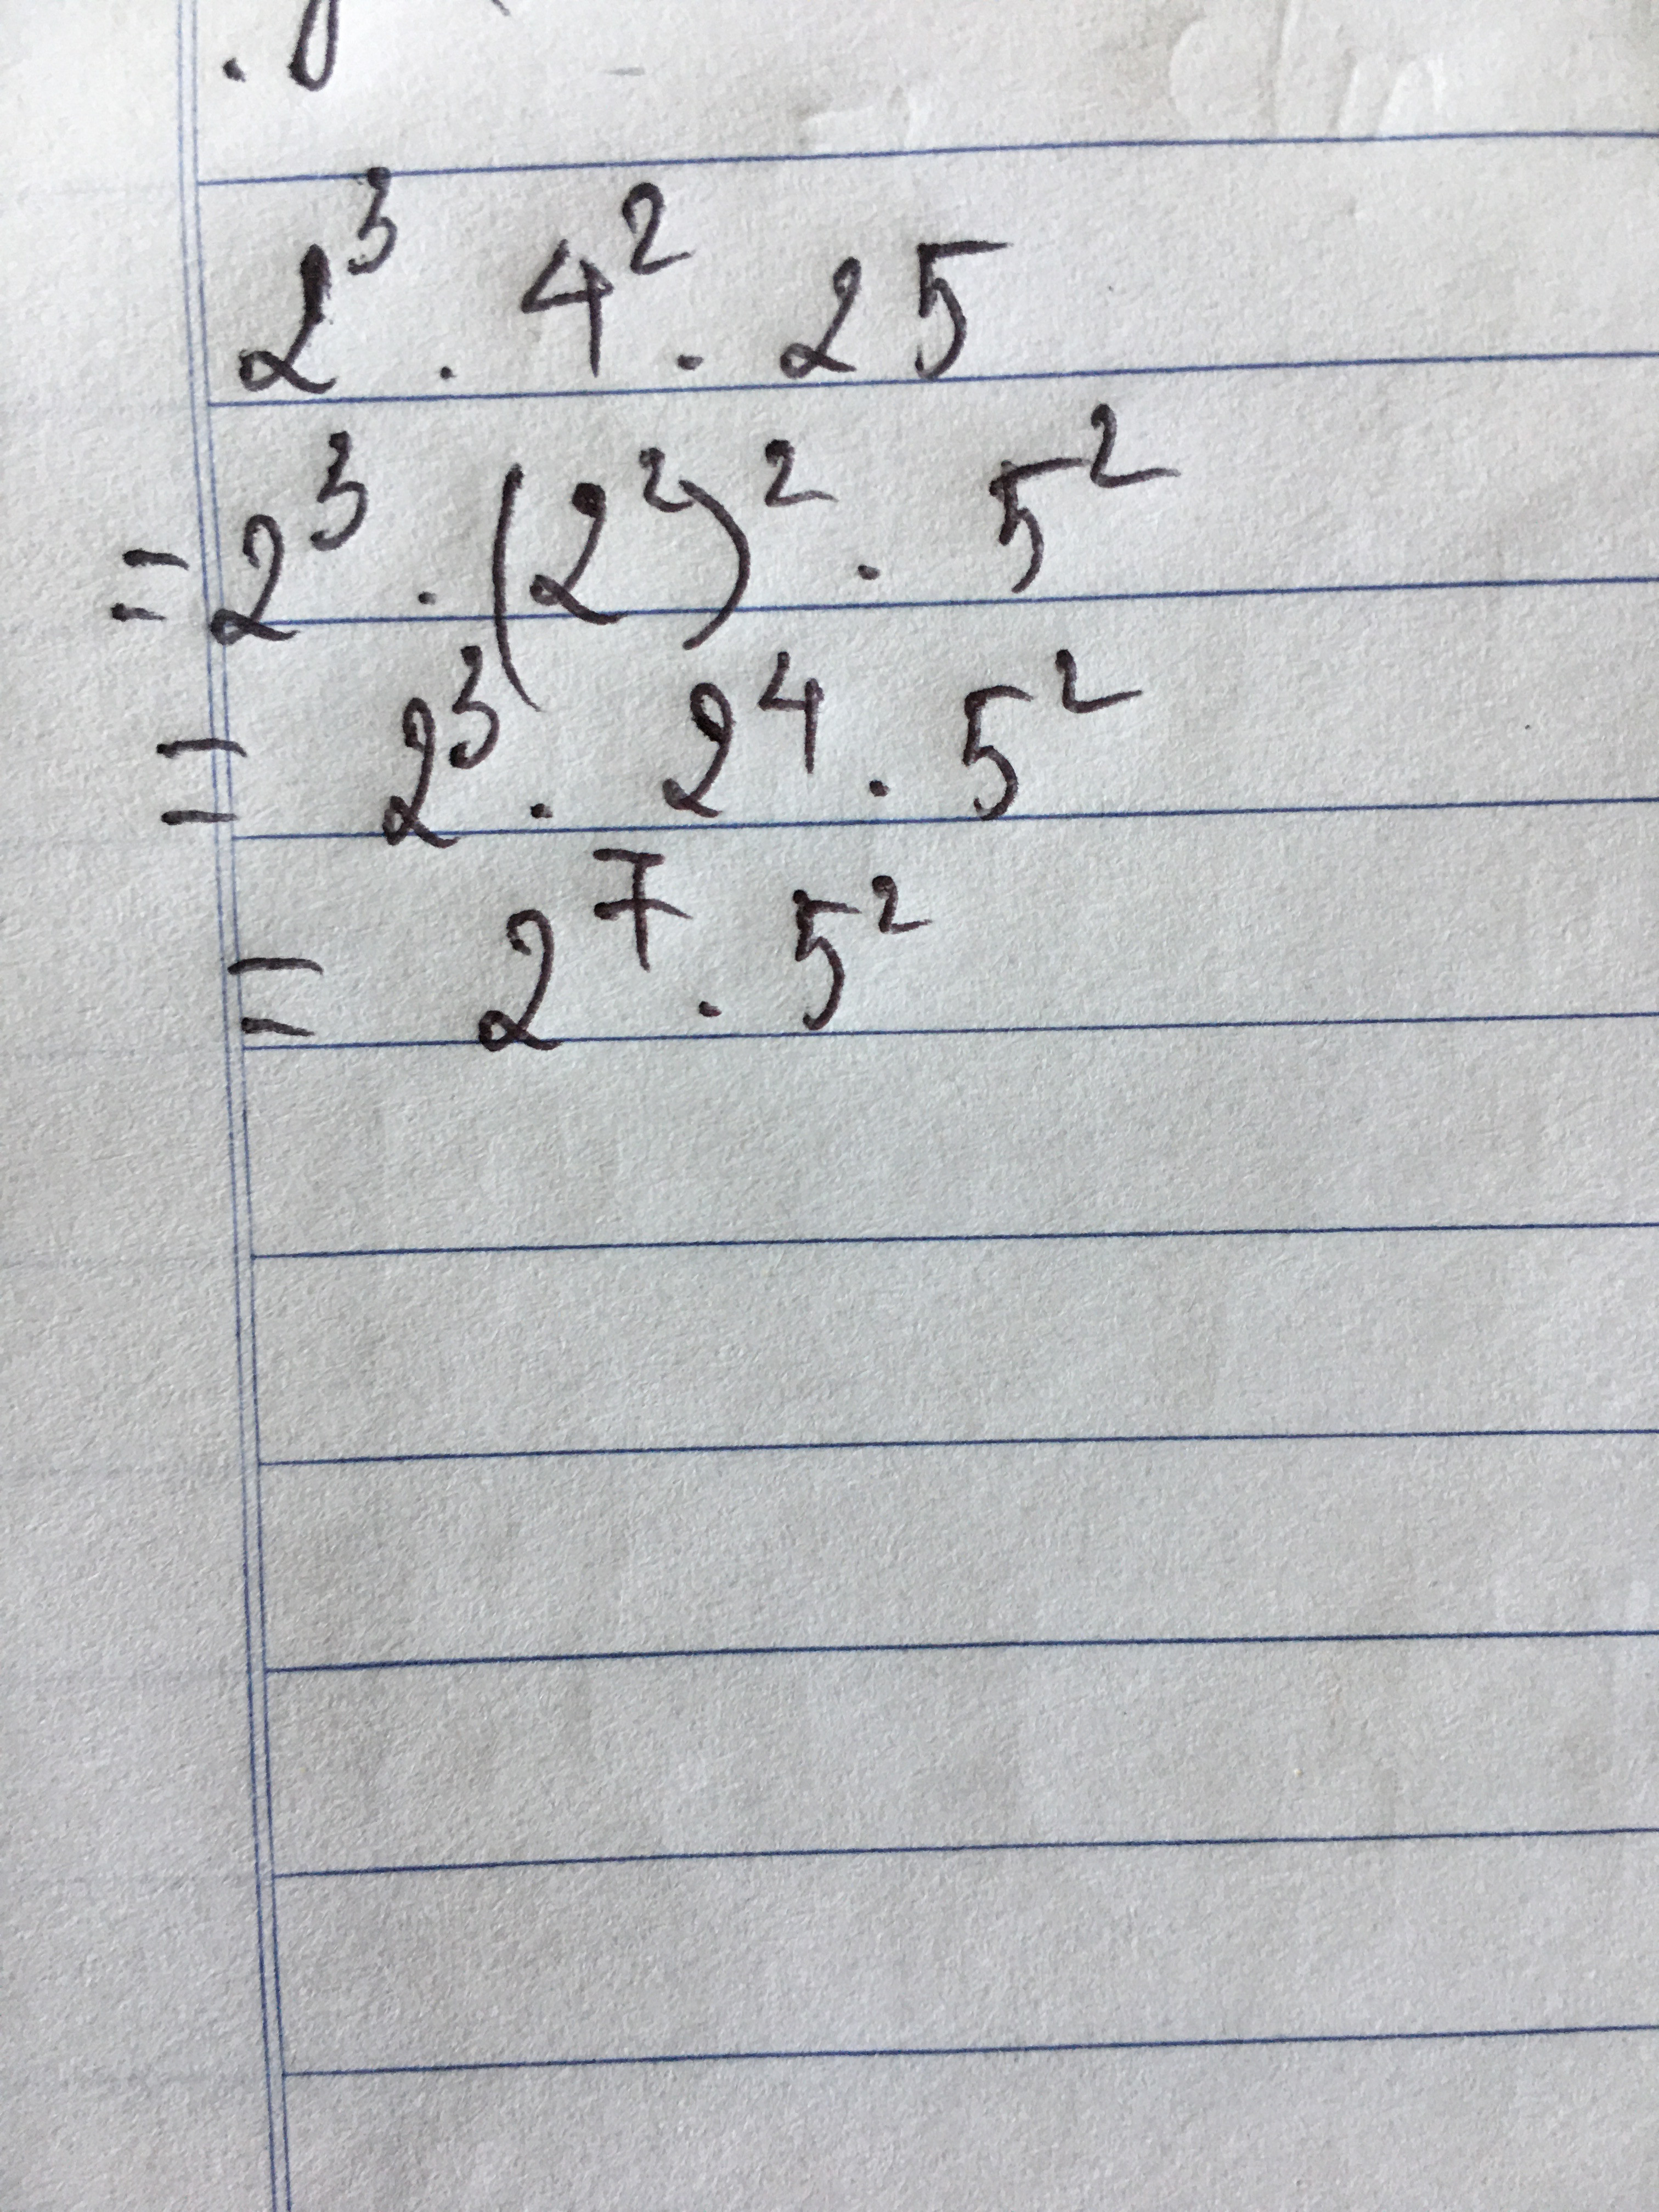 2³ . 4² . 25
= 2³ . (2²)² . 5²
= 2³ . 2⁴ . 5²
= 2⁷ . 5²